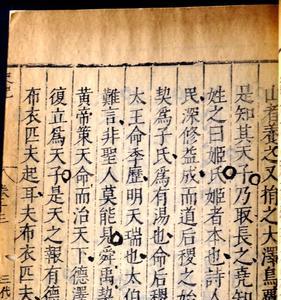 山者養之又捐之大澤鳥覆
是知其天子乃取長之堯知
姓之曰姬氏姬者本也詩人
民深修益成而道后稷之始
契爲子氏爲有湯也命后稷
太王命季歷明天瑞也太伯
難言非聖人莫能見舜禹契
黃帝策天命而治天下德澤
復立爲天子是天之報有德
布衣匹夫起耳夫布衣匹夫
史記
三代